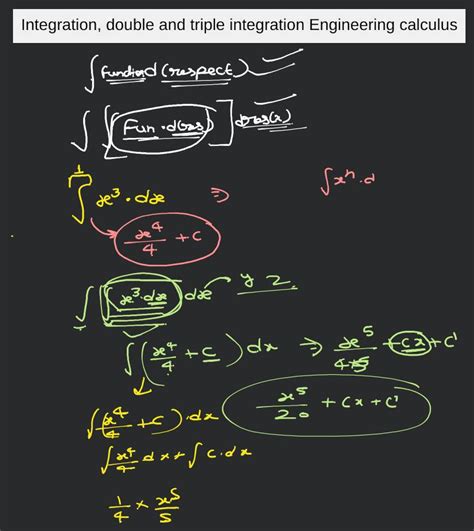 Integration, double and triple integration Engineering calculus
∫ function d (respect)
∫ [ ∫ Fun · d(res) ] d res(x)
1
∫ x³ · dx ⇒ ∫ xⁿ · d
x⁴/4 + c
∫ [ ∫ x³ · dx ] dx y 2
∫ ( x⁴/4 + c ) dx ⇒ x⁵/4·5 + cx + c'
∫ ( x⁴/4 + c ) · dx x⁵/20 + Cx + c'
∫ x⁴/4 dx + ∫ c · dx
1/4 × x⁵/5